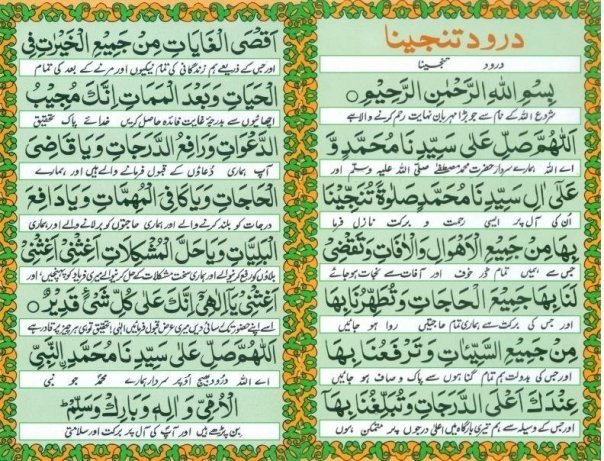 درود تنجینا
درود تنجینا
بِسْمِ اللهِ الرَّحْمٰنِ الرَّحِيْمِ
شروع اللہ کے نام سے جو بڑا مہربان نہایت رحم کرنے والا ہے
اَللّٰهُمَّ صَلِّ عَلٰى سَيِّدِنَا مُحَمَّدٍ وَّ
اے اللہ ہمارے سردار حضرت محمد مصطفےٰ صلی اللہ علیہ وسلم اور
عَلٰى اٰلِ سَيِّدِنَا مُحَمَّدٍ صَلٰوةً تُنَجِّيْنَا
اُن کی آل پر ایسی رحمت و برکت نازل فرما
بِهَا مِنْ جَمِيْعِ الْاَهْوَالِ وَالْاٰفَاتِ وَتَقْضِيْ
جس سے ہمیں تمام ڈر خوف اور آفات سے نجات ہو جائے
لَنَا بِهَا جَمِيْعَ الْحَاجَاتِ وَتُطَهِّرُنَا بِهَا
اور جس کی برکت سے ہماری تمام حاجتیں روا ہو جائیں
مِنْ جَمِيْعِ السَّيِّئَاتِ وَتَرْفَعُنَا بِهَا
اور جس کی بدولت ہم تمام گناہوں سے پاک و صاف ہو جائیں
عِنْدَكَ اَعْلَى الدَّرَجَاتِ وَتُبَلِّغُنَا بِهَا
اور جس کے وسیلہ سے ہم تیری بارگاہ میں اعلیٰ درجوں پر متمکن ہوں
اَقْصَى الْغَايَاتِ مِنْ جَمِيْعِ الْخَيْرَاتِ فِى
اور جس کے ذریعے ہم زندگانی کی تمام نیکیوں اور مرنے کے بعد کی تمام
الْحَيَاتِ وَبَعْدَ الْمَمَاتِ اِنَّكَ مُجِيْبُ
اچھائیوں سے بدرجۂ غایت فائدہ حاصل کریں خدائے پاک تحقیق
الدَّعْوَاتِ وَرَافِعُ الدَّرَجَاتِ وَيَا قَاضِىَ
آپ ہماری دُعاؤں کے قبول فرمانے والے ہیں اور ہمارے
الْحَاجَاتِ وَيَا كَافِىَ الْمُهِمَّاتِ وَيَا دَافِعَ
درجات کو بلند کرنے والے اور ہماری حاجتوں کو برلانے والے اور ہماری
الْبَلِيَّاتِ وَيَا حَلَّ الْمُشْكِلَاتِ اَغِثْنِىْ اَغِثْنِىْ
بلاؤں کو رفع کرنیوالے اور ہماری سخت مشکلات کے حل کرنیوالے میری فریاد کو پہنچیں اور
اَغِثْنِىْ يَا اِلٰهِىْ اِنَّكَ عَلٰى كُلِّ شَىْءٍ قَدِيْرٌ
اسے اپنے حضور تک رسائی دیں میری عرض قبول فرمائیں الٰہی تحقیق تو ہی ہر چیز پر قادر ہے
اَللّٰهُمَّ صَلِّ عَلٰى سَيِّدِنَا مُحَمَّدِنِ النَّبِىِّ
اے اللہ درُود بھیج اوپر سردار ہمارے محمدؐ جو نبی
الْاُمِّىِّ وَاٰلِهٖ وَبَارِكْ وَسَلِّمْ
بِن پڑھے ہیں اور آپؐ کی آل پر برکت اور سلامتی